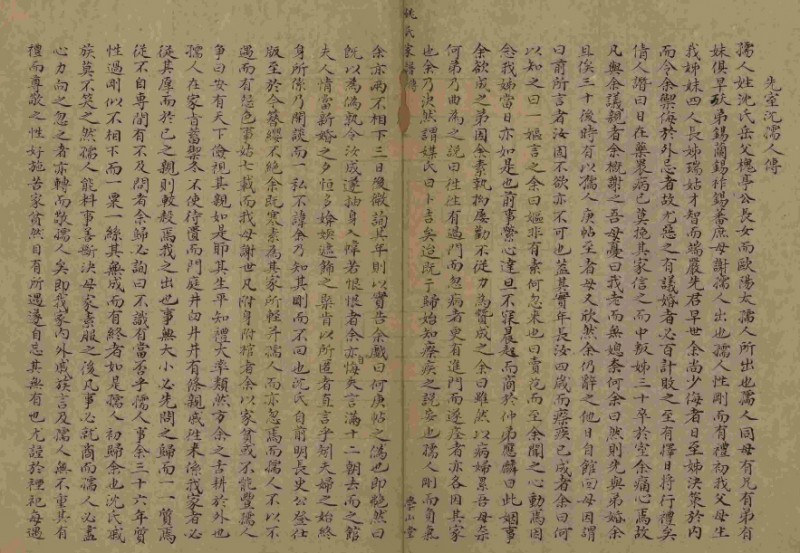 先室沈孺人傳
孺人姓沈氏岳父槐亭公長女而歐陽太孺人所出也孺人同母有兄有弟有
妹俱早殀弟錫蘭錫祚錫蕃庶母謝孺人出也孺人性剛而有禮初我父母生
我姊妹四人長姊瑞姑才智而端嚴先君早世余尚少侮者日至姊決策於內
而令余禦侮於外忌者故尤惡之有議婚者必百計敗之至有擇日將行禮矣
倩人譖曰日在藥罍病已莫挽其家信之而中叛姊三十卒於室余痛心焉故
凡與余議親者余概謝之吾母憂曰我老而無媳柰何余曰然則先與弟婚余
且俟三十後時有以孺人庚帖至者母又欣然余仍辭之他日自館回母因謂
曰前所言者汝固不欲亦不可也蓋其實年長汝四歲而瘵疾已成者余曰何
以知之曰一嫗言之余曰嫗非有素何忽来也曰賣花而至余聞之心動焉因
念我姊當日亦如是也前事縈心達旦不寐晨起而商於仲弟應麟曰此姻事
余欲成之弟因余素執拗屢勸不從力為贊成之余曰雖然以病婦累吾母柰
何弟乃曲為之說曰往往有過門而忽病者更有進門而遂産者亦各因其家
也余乃決然謂媒氏曰卜吉矣迨既于歸始知瘵疾之說妄也孺人剛而負氣
姚氏家譜傳
榮山堂
余亦兩不相下三日後微詢其年則以實告余戲曰何庚帖之僞也即艴然曰
既以為僞孰令汝成遂抽身入幃若恨恨者余亦悔失言滿十二朝去而之館
夫人情當新婚之夕恒多婾娛遮飾之槩肯以所匿者直言乎矧夫婦之始終
身所係乃開談而一私不諱余乃知其剛而不回也沈氏自前明長史公登仕
版至於今簪纓不絕余既寒素為其家所輕并孺人而亦忽焉而孺人不以不
遇而有慍色事姑七載而我母謝世凡附身附棺者余以家貧或不能豐孺人
爭曰安有天下儉視其親如是耶其生平知禮大率類然方余之舌耕於外也
孺人在家旨蓄禦冬不使待置而門庭井臼井井有條親戚往来係我家者必
從其厚而於己之親則較殺焉我之出也事無大小必先問之歸而一一質焉
從不自專間有不及問者余歸必詢曰不識有當否乎孺人事余三十六年質
性過剛似不相下而一粟一絲其無成而有終者如是孺人初歸余也沈氏戚
族莫不笑之然孺人能料事善斷決母家素服之後凡事必就商而孺人必盡
心力向之忽之者亦轉而敬孺人矣即我家內外戚族言及孺人無不重其有
禮而尊敬之性好施吾家貧然目有所遇遂自忘其無有也尤謹於禋祀每遇